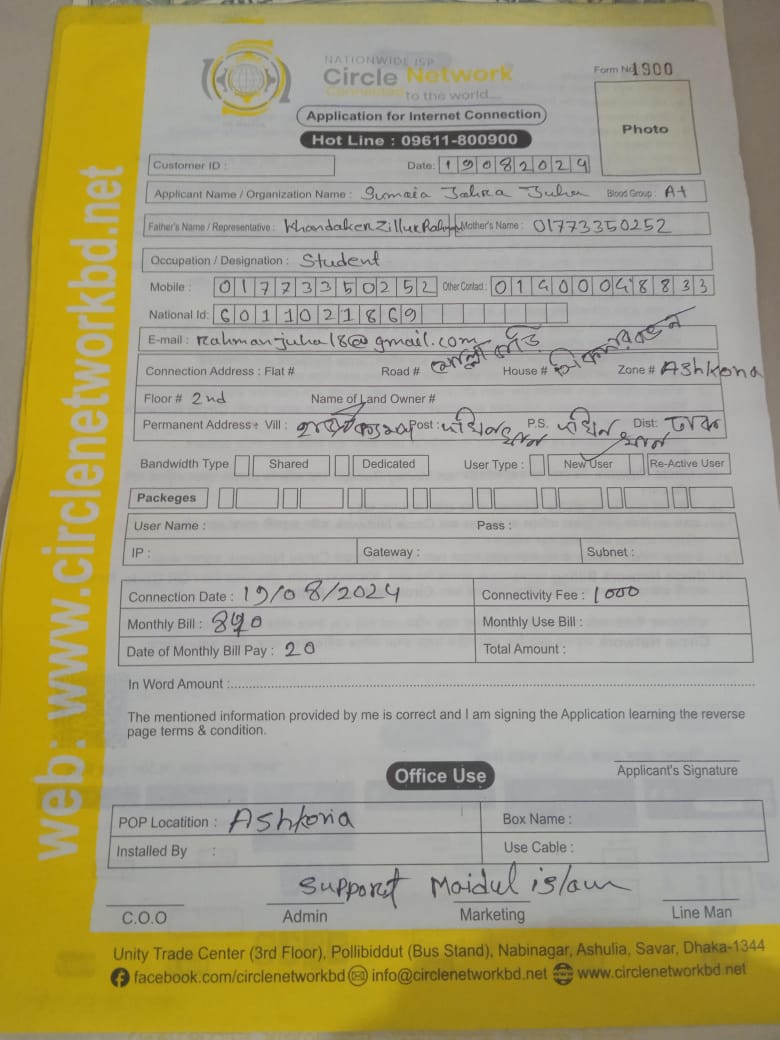 NATIONWIDE ISP
Circle Network
Connected to the world....
Form No 1900
Application for Internet Connection
Photo
Hot Line : 09611-800900
Customer ID : Date: 19082024
Applicant Name / Organization Name : Sumaia Jahra Juha Blood Group : A+
Father's Name / Representative : Khandaker Zillur Rahman Mother's Name : 01773350252
Occupation / Designation : Student
Mobile : 01773350252 Other Contact : 01400048833
National Id: 6011021869
E-mail : rahmanjuha18@gmail.com
Connection Address : Flat # Road # House # Zone # Ashkona
Floor # 2nd Name of Land Owner #
Permanent Address + Vill : Post : দক্ষিনখান P.S. দক্ষিনখান Dist: ঢাকা
Bandwidth Type Shared Dedicated User Type : New User Re-Active User
Packeges
User Name : Pass :
IP : Gateway : Subnet :
Connection Date : 19/08/2024 Connectivity Fee : 1000
Monthly Bill : Monthly Use Bill :
Date of Monthly Bill Pay : 20 Total Amount :
In Word Amount :
The mentioned information provided by me is correct and I am signing the Application learning the reverse
page terms & condition.
Applicant's Signature
Office Use
POP Locatition : Ashkona Box Name :
Installed By : Use Cable :
Support Maidul islam
C.O.O Admin Marketing Line Man
Unity Trade Center (3rd Floor), Pollibiddut (Bus Stand), Nabinagar, Ashulia, Savar, Dhaka-1344
facebook.com/circlenetworkbd info@circlenetworkbd.net www.circlenetworkbd.net
web: www.circlenetworkbd.net